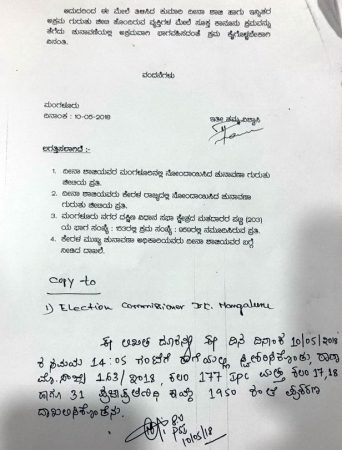 ಆದುದರಿಂದ ಈ ಮೇಲೆ ತಿಳಿಸಿದ ಕುಮಾರಿ ದೀನಾ ಶಾಜಿ ಹಾಗು ಇನ್ನಿತರ
ಅಕ್ರಮ ಗುರುತು ಚೀಟಿ ಹೊಂದಿರುವ ವ್ಯಕ್ತಿಗಳ ಮೇಲೆ ಸೂಕ್ತ ಕಾನೂನು ಕ್ರಮವನ್ನು
ತೆಗೆದು ಚುನಾವಣೆಯಲ್ಲಿ ಅಕ್ರಮವಾಗಿ ಭಾಗವಹಿಸದಂತೆ ಕ್ರಮ ಕೈಗೊಳ್ಳಬೇಕಾಗಿ
ವಿನಂತಿ.
ವಂದನೆಗಳು
ಮಂಗಳೂರು
ದಿನಾಂಕ : 10-05-2018
ಇತೀ ತಮ್ಮ ವಿಶ್ವಾಸಿ
ಲಗತ್ತಿಸಲಾಗಿದೆ :-
1. ದೀನಾ ಶಾಜಿಯವರ ಮಂಗಳೂರಿನಲ್ಲಿ ನೋಂದಾಯಿಸಿದ ಚುನಾವಣಾ ಗುರುತು
ಚೀಟಿಯ ಪ್ರತಿ.
2. ದೀನಾ ಶಾಜಿಯವರು ಕೇರಳ ರಾಜ್ಯದಲ್ಲಿ ನೋಂದಾಯಿಸಿದ ಚುನಾವಣಾ
ಗುರುತು ಚೀಟಿಯ ಪ್ರತಿ.
3. ಮಂಗಳೂರು ನಗರ ದಕ್ಷಿಣ ವಿಧಾನ ಸಭಾ ಕ್ಷೇತ್ರದ ಮತದಾರರ ಪಟ್ಟಿ (203)
ಯ ಭಾಗ ಸಂಖ್ಯೆ : ಕ್ರಮ ಸಂಖ್ಯೆ : ನಮೂದಿಸಿರುವ ಪ್ರತಿ.
4. ಕೇರಳ ಮುಖ್ಯ ಚುನಾವಣಾ ಅಧಿಕಾರಿಯವರು ದೀನಾ ಶಾಜಿಯವರ ಬಗ್ಗೆ
ನೀಡಿದ ದಾಖಲೆ.
Copy to
1) Election Commissioner D.C. Mangaluru
ಈ ದಿನ ದಿನಾಂಕ 10/05/2018
ಸಮಯ 14:05 ಗಂಟೆಗೆ ಠಾಣೆಯಲ್ಲಿ ಸ್ವೀಕರಿಸಿಕೊಂಡು, ಠಾಣಾ
163/2018, ಕಲಂ 177 IPC ಮತ್ತು ಕಲಂ 17,18
ಹಾಗೂ 31 ಕಾಯ್ದೆ 1950 ರಂತೆ ಪ್ರಕರಣ
ದಾಖಲಿಸಿಕೊಂಡೆನು.
10/05/18